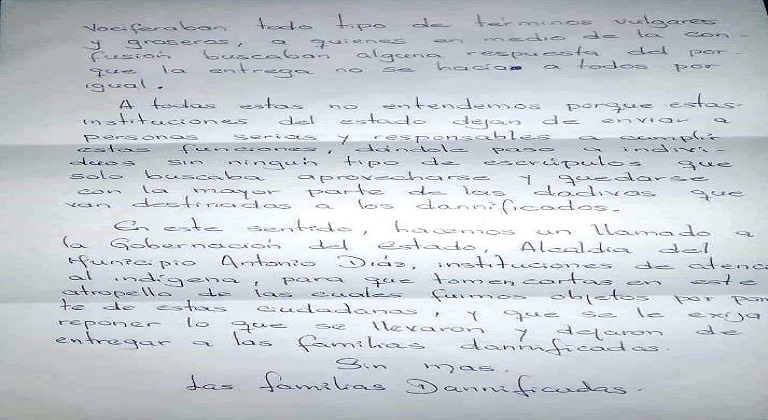 vociferaban todo tipo de términos vulgares
y groseros, a quienes en medio de la con-
fusión buscaban alguna respuesta del por-
que la entrega no se hacía a todos por
igual.
A todas estas no entendemos porque estas
instituciones del estado dejan de enviar a
personas serias y responsables a cumplir
estas funciones, dándole paso a indivi-
duos sin ningún tipo de escrúpulos que
solo buscaba aprovecharse y quedarse
con la mayor parte de las dadivas que
van destinadas a los dannificados.
En este sentido, hacemos un llamado a
la Gobernación del estado, Alcaldía del
Municipio Antonio Díaz, instituciones de atenci
al indígena, para que tomen cartas en este
atropello de las cuales fuimos objetos por par
te de estas ciudadanas, y que se le exija
reponer lo que se llevaron y dejaron de
entregar a las familias dannificadas.
Sin mas.
Las familias Dannificadas.